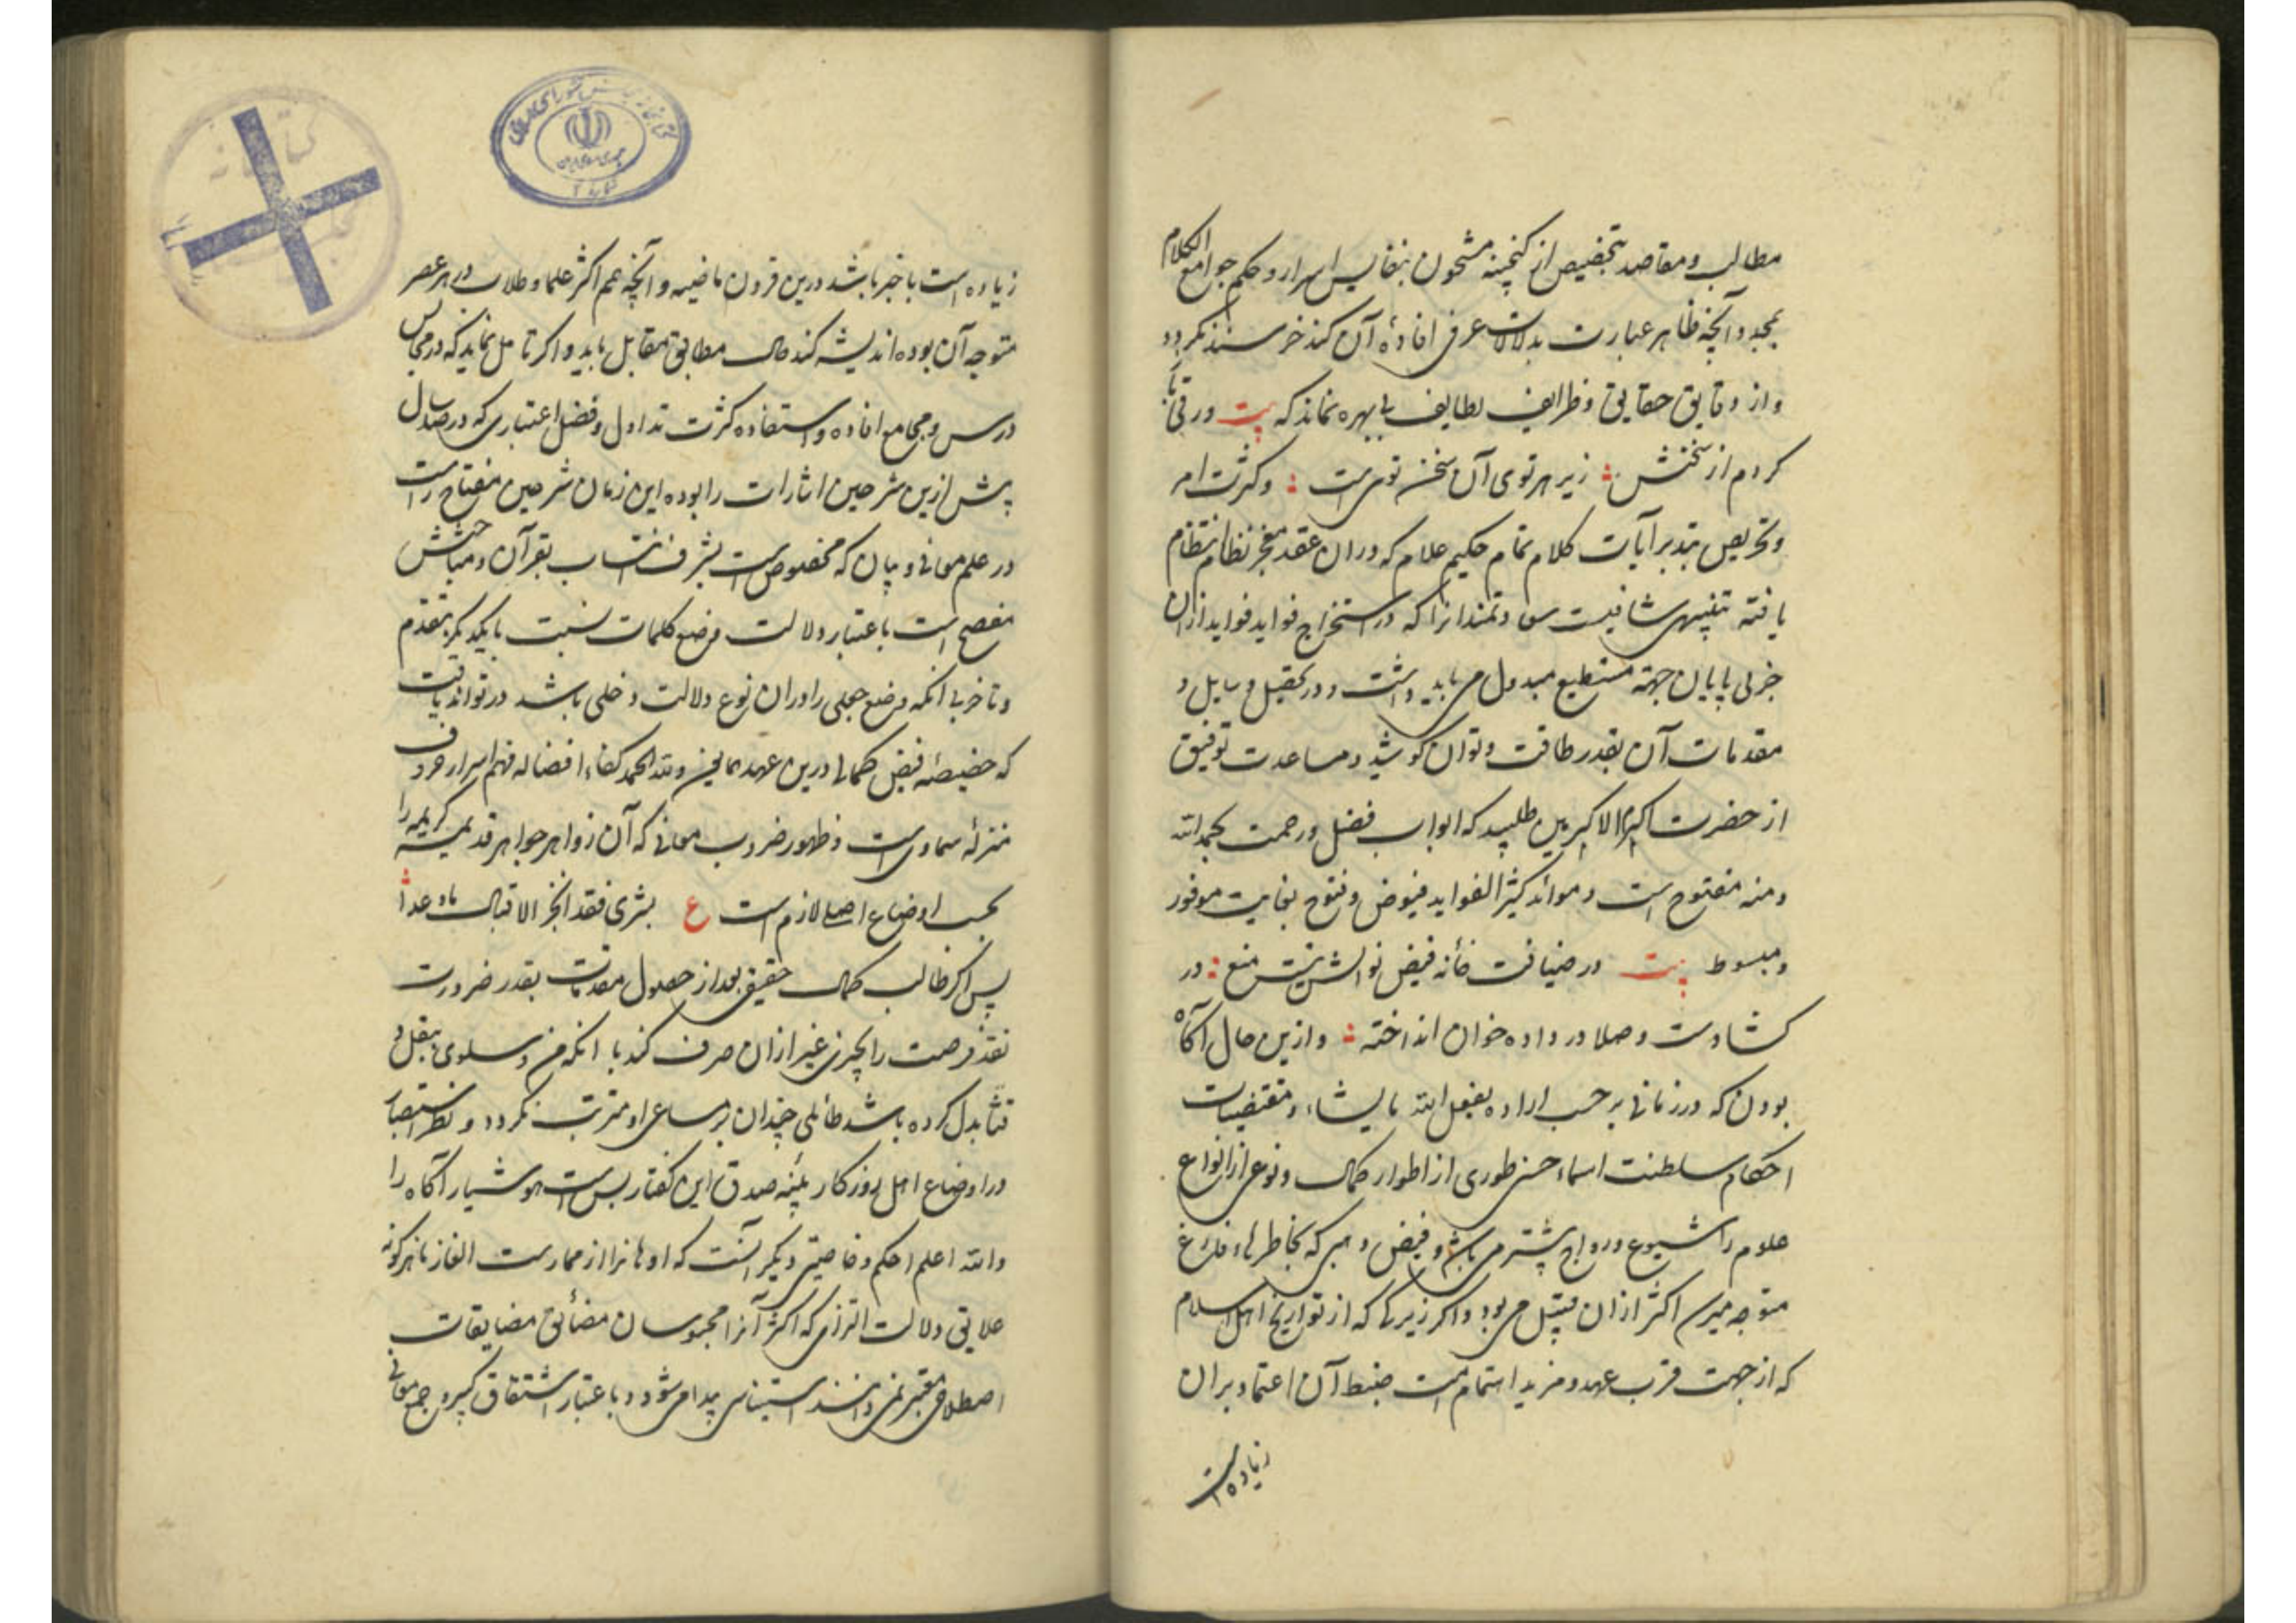 مطالب و مقاصد بتخصیص از کنجینه مشحون بنفایس اسرار و حکم جوامع الکلام
بمجرد آنچه ظاهر عبارت بدلالات عرفی افادهٔ آن کند خرسند نکردد
و از دقایق حقایق و ظرایف لطایف بی بهره نماند که بیت ورقی تا
کردم از سخنش زیر هر توی آن سخن تویی است و کثرت امر
و تحریص بتدبر آیات کلام تمام حکیم علام که دران عقد معجز نظام انتظام
یافته تنبیهی شافیست سعادتمندانرا که در استخراج فواید فواید ازان
بحر بی پایان جهد مستطیع مبذول می باید داشت و در تحصیل وسایل و
مقدمات آن بقدر طاقت و توان کوشید و مساعدت توفیق
از حضرت اکبر الاکبرین طلبید که ابواب فضل و رحمت بحمدالله
و منه مفتوح است و موائد کثیر الفواید فیوض و فتوح بغایت موفور
و مبسوط بیت در ضیافت خانه فیض نوالش نیست منع در
کشادست و صلا در داده خوان انداخته و ازین حال آکاه
بودن که در زمانی بر حسب اراده یفعل الله ما یشاء و مقتضیات
احکام سلطنت اسماء حسنی طوری از اطوار کمال و نوعی از انواع
علوم را شیوع و رواج بیشتر می باشد و فیض که بخاطرها و فارغ
متوجه اکثر ازان قبیل می بود و اکر زیرکی که از تواریخ اهل اسلام
که از جهت قرب عهد و مزید اهتمام امت ضبط آن اعتماد بران
زیاده است
زیاده است با خبر باشد درین قرون ماضیه و آنچه عم اکثر علما و طلاب در هر عصر
متوجه آن بوده اندیشه کند حال مطابق مقابل یابد و اکر تامل نماید که در مجالس
درس و مجامع افاده و استفاده کثرت تداول و فضل اعتباری که در صد سال
پیش ازین شرحین اشارات را بوده این زمان شرحین مفتاح راست
در علم معانی و بیان که مخصوص است بشرف انتساب بقرآن و مباحثش
مفصح است باعتبار دلالت وضع کلمات نسبت بایکدیکر بتقدم
و تاخر بی آنکه وضع جعلی را دران نوع دلالت دخلی باشد در تواند یافت
که خصیصه فیض کمالی درین عهد همایون ولله الحمد کفاء افضاله فهم اسرار حروف
منزلهٔ سماوی است و ظهور ضروب معانی که آن زواهر جواهر قدیمه کریمه را
بحسب اوضاع اصلی لازم است ع بشری فقد انجز الاقبال ما وعدا
پس اکر طالب کمال حقیقی بعد از حصول مقدمات بقدر ضرورت
نقد فرصت را بچیزی غیر ازان صرف کند با آنکه من و سلوی ببقل و
قثا بدل کرده باشد طائلی چندان بر مساعی او مترتب نکردد و نظر استبصار
در اوضاع اهل روزکار بینه صدق این کفتار بس است هوشیار آکاه را
والله اعلم احکم و خاصیتی دیکر آنست که اذهانرا از ممارست الغاز بهر کونه
علایق دلالت التزامی که اکثر آنرا محبوسان مضائق مضایقات
اصطلاحی معتبر نمی دانند استیناسی پیدا می شود و باعتبار اشتقاق کبیر و جمیع معانی